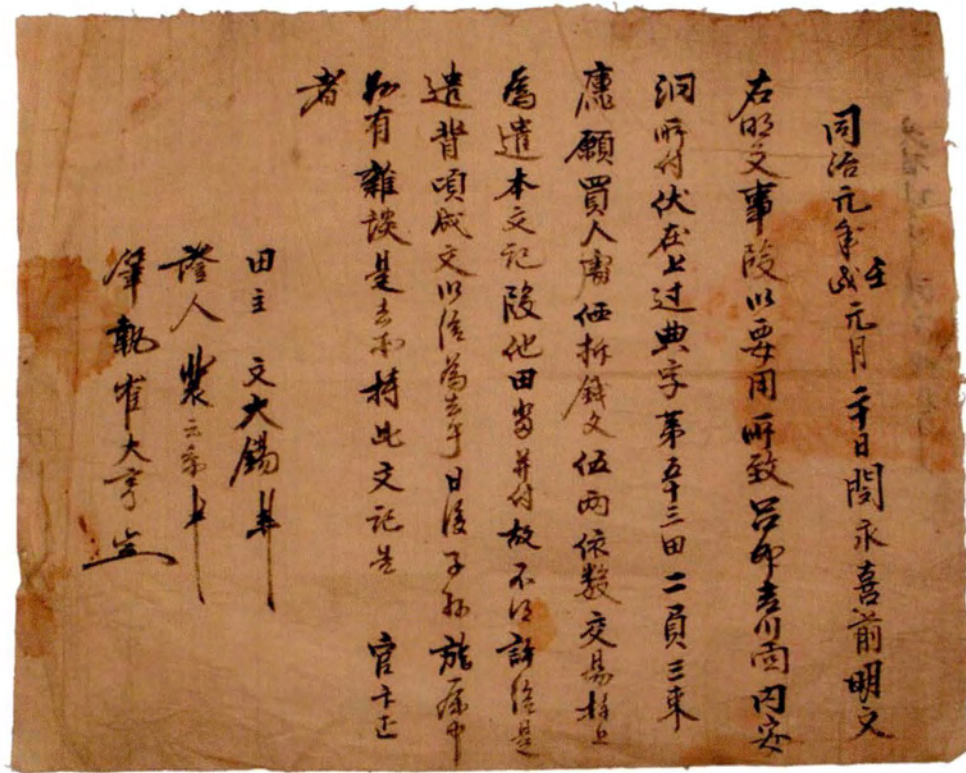 同治元年壬戌元月二十日閔永喜前明文
右明文事段以要用所致呂
洞所付伏在上过典字第五十三田二負三束
願買人處価折錢文伍兩依數交易捧上
為遣本文記段他田畓并付故不得許給是
遣背頃成文以給為去乎日後子孫族屬中
如有雜談是去等持此文記告官卞正
者
田主 文大錫
證人 裴云
筆執 崔大亨